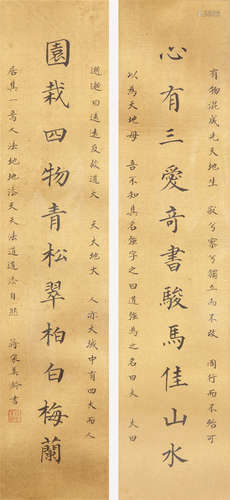 有物混成先天地生 寂兮寥兮獨立而不改 周行而不殆可
心有三愛奇書駿馬佳山水
以為天地母 吾不知其名強字之曰道強為之名曰大 大曰
逝逝曰遠遠反故道大 天大地大 人亦大域中有四大而人
園栽四物青松翠柏白梅蘭
居其一焉人法地地法天天法道道法自然 蔣宋美齡書